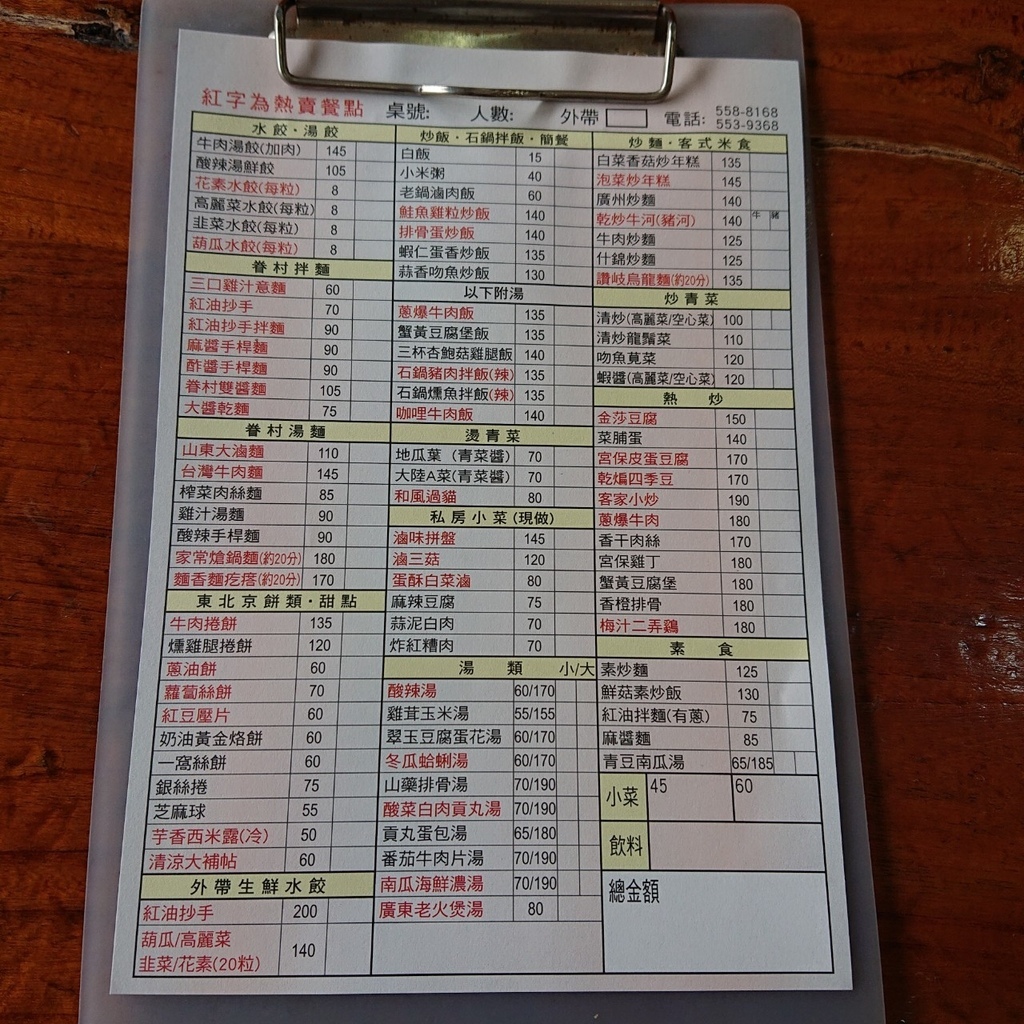 紅字為熱賣餐點 桌號: 人數: 外帶 電話: 558-8168 553-9368
水餃·湯餃
牛肉湯餃(加肉) 145
酸辣湯鮮餃 105
花素水餃(每粒) 8
高麗菜水餃(每粒) 8
韭菜水餃(每粒) 8
葫瓜水餃(每粒) 8
眷村拌麵
三口雞汁意麵 60
紅油抄手 70
紅油抄手拌麵 90
麻醬手桿麵 90
酢醬手桿麵 90
眷村雙醬麵 105
大醬乾麵 75
眷村湯麵
山東大滷麵 110
台灣牛肉麵 145
榨菜肉絲麵 85
雞汁湯麵 90
酸辣手桿麵 90
家常熗鍋麵(約20分) 180
麵香麵疙瘩(約20分) 170
東北京餅類·甜點
牛肉捲餅 135
燻雞腿捲餅 120
蔥油餅 60
蘿蔔絲餅 70
紅豆壓片 60
奶油黃金烙餅 60
一窩絲餅 60
銀絲捲 75
芝麻球 55
芋香西米露(冷) 50
清涼大補帖 60
外帶生鮮水餃
紅油抄手 200
葫瓜/高麗菜
韭菜/花素(20粒) 140
炒飯·石鍋拌飯·簡餐
白飯 15
小米粥 40
老鍋滷肉飯 60
鮭魚雞粒炒飯 140
排骨蛋炒飯 140
蝦仁蛋香炒飯 135
蒜香吻魚炒飯 130
以下附湯
蔥爆牛肉飯 135
蟹黃豆腐堡飯 135
三杯杏鮑菇雞腿飯 140
石鍋豬肉拌飯(辣) 135
石鍋燻魚拌飯(辣) 135
咖哩牛肉飯 140
燙青菜
地瓜葉 (青菜醬) 70
大陸A菜(青菜醬) 70
和風過貓 80
私房小菜(現做)
滷味拼盤 145
滷三菇 120
蛋酥白菜滷 80
麻辣豆腐 75
蒜泥白肉 70
炸紅糟肉 70
湯類 小/大
酸辣湯 60/170
雞茸玉米湯 55/155
翠玉豆腐蛋花湯 60/170
冬瓜蛤蜊湯 60/170
山藥排骨湯 70/190
酸菜白肉貢丸湯 70/190
貢丸蛋包湯 65/180
番茄牛肉片湯 70/190
南瓜海鮮濃湯 70/190
廣東老火煲湯 80
炒麵·客式米食
白菜香菇炒年糕 135
泡菜炒年糕 145
廣州炒麵 140
乾炒牛河(豬河) 140 牛 豬
牛肉炒麵 125
什錦炒麵 125
讚岐烏龍麵(約20分) 135
炒青菜
清炒(高麗菜/空心菜) 100
清炒龍鬚菜 110
吻魚莧菜 120
蝦醬(高麗菜/空心菜) 120
熱炒
金莎豆腐 150
菜脯蛋 140
宮保皮蛋豆腐 170
乾煸四季豆 170
客家小炒 190
蔥爆牛肉 180
香干肉絲 170
宮保雞丁 180
蟹黃豆腐堡 180
香橙排骨 180
梅汁二弄鷄 180
素食
素炒麵 125
鮮菇素炒飯 130
紅油拌麵(有蔥) 75
麻醬麵 85
青豆南瓜湯 65/185
小菜 45 60
飲料
總金額